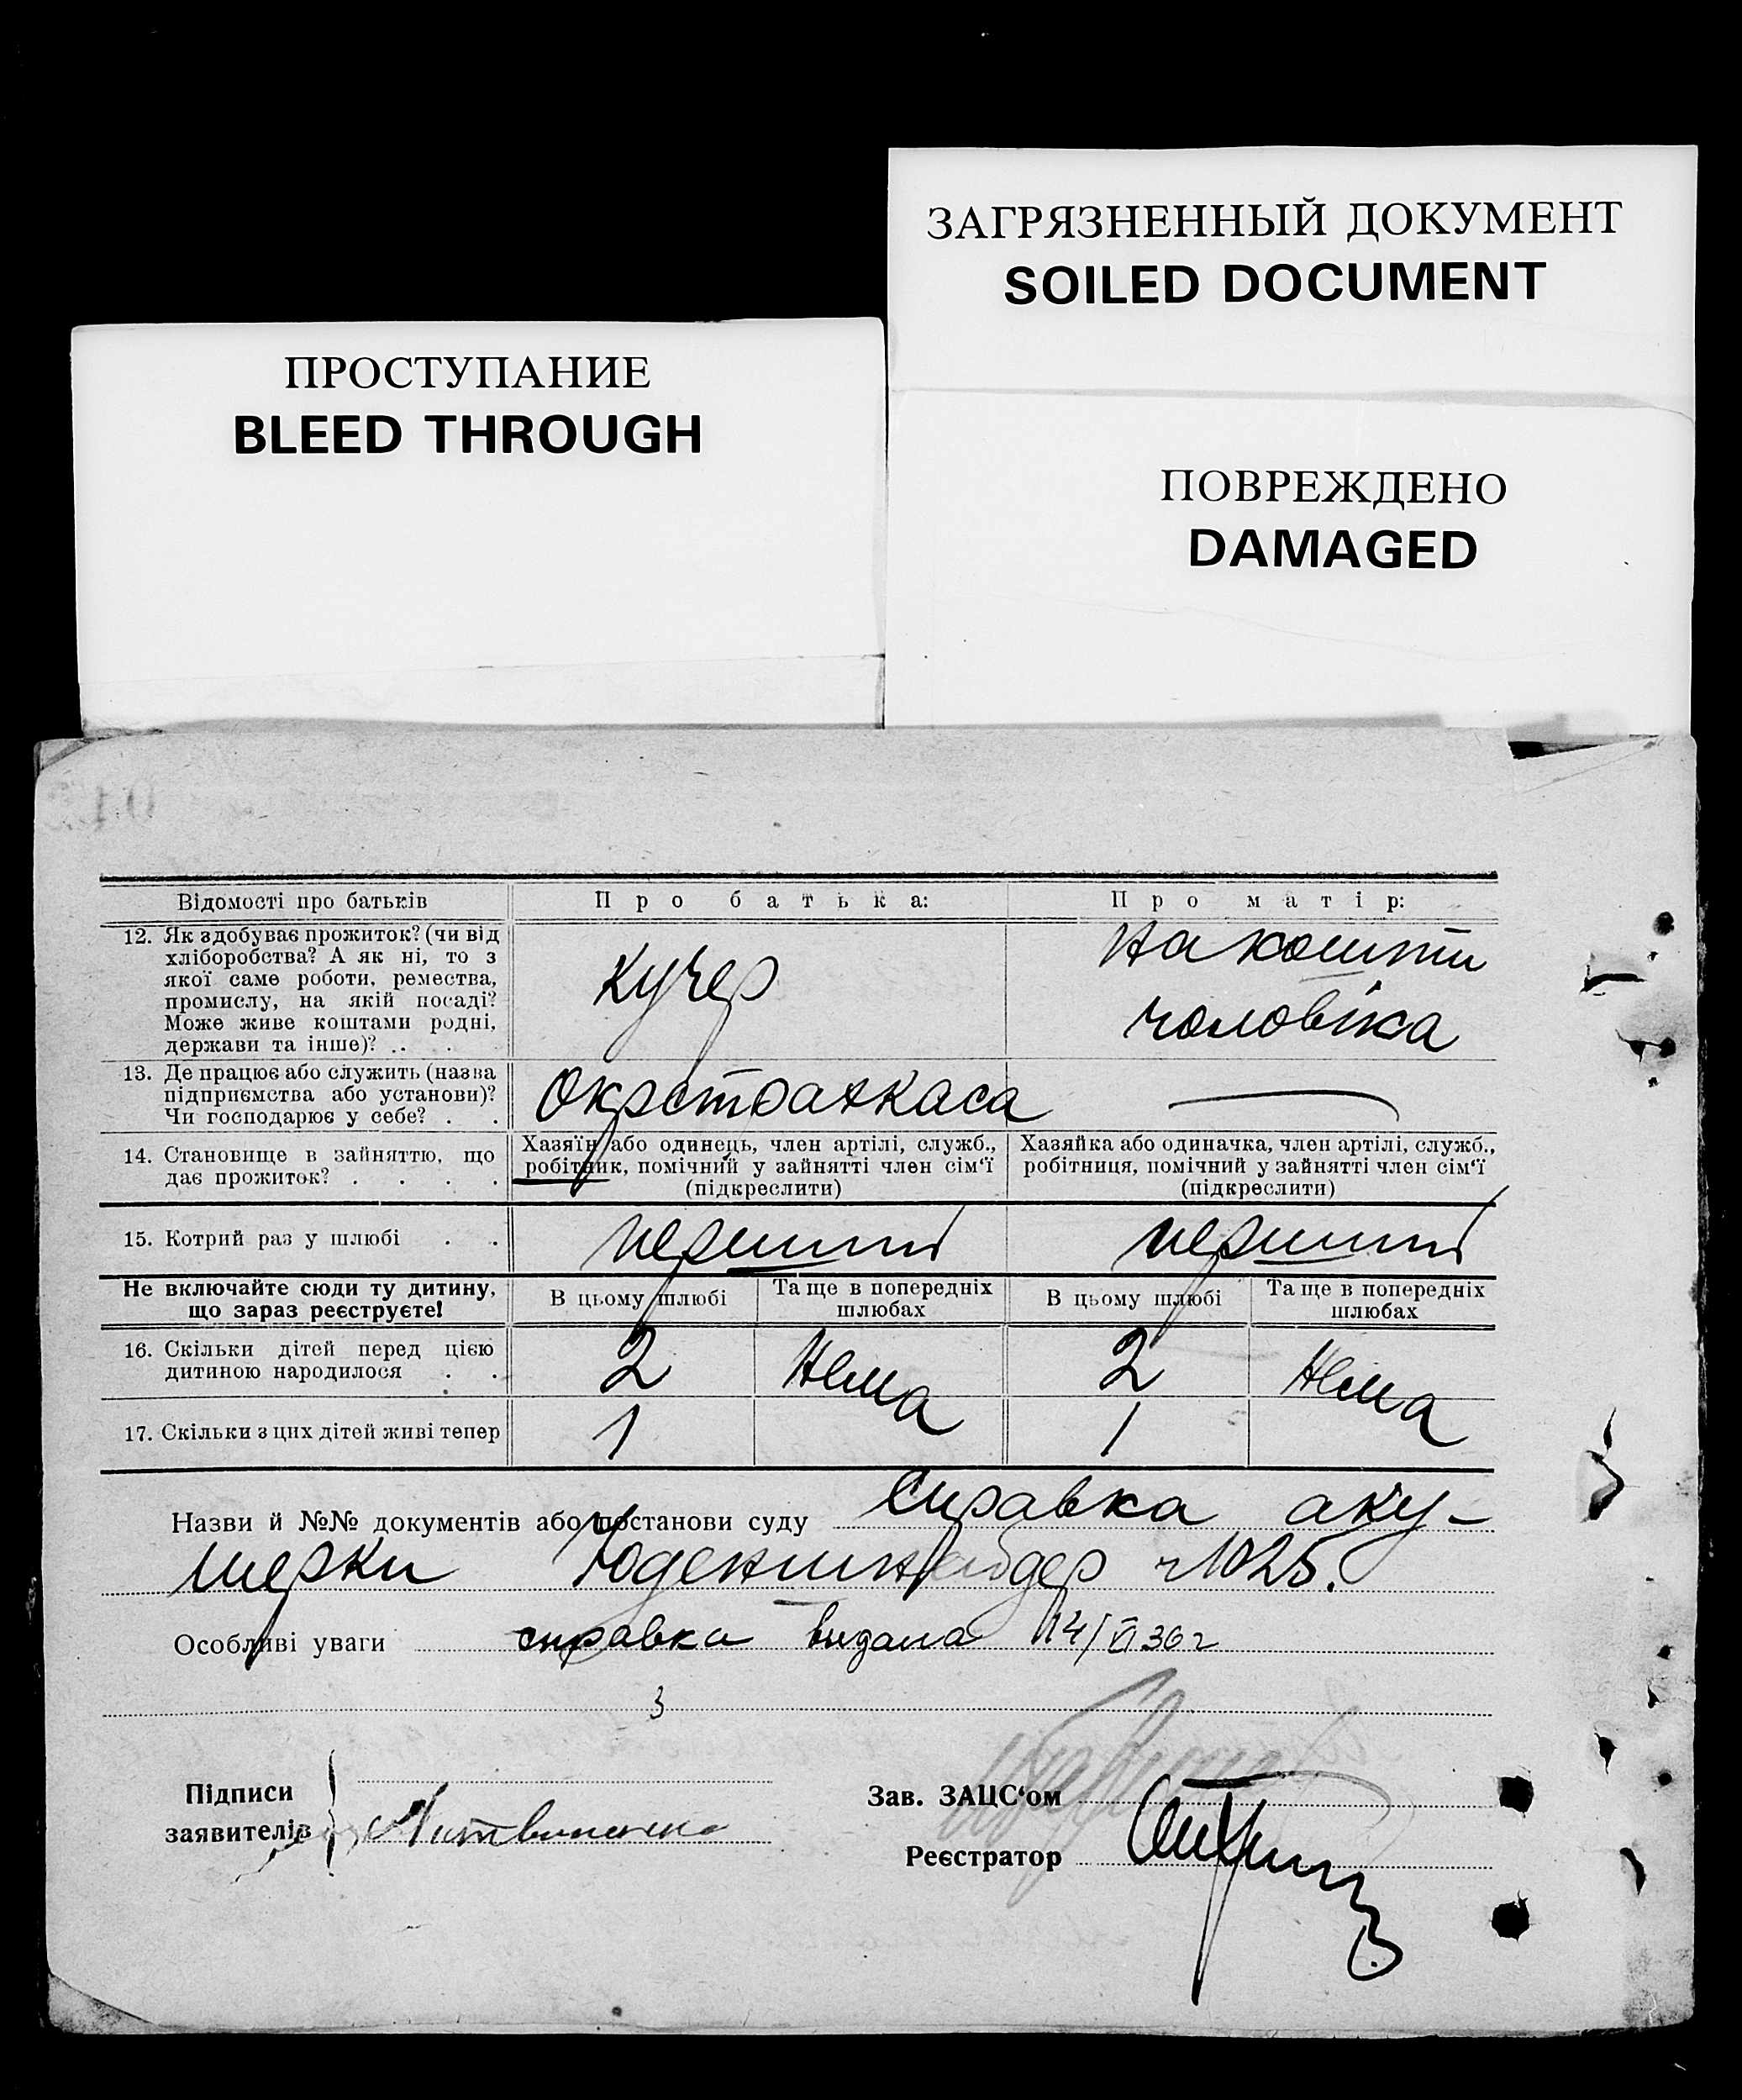 ЗАГРЯЗНЕННЫЙ ДОКУМЕНТ
SOILED DOCUMENT
ПРОСТУПАНИЕ
BLEED THROUGH
ПОВРЕЖДЕНО
DAMAGED
Відомості про батьків
Про батька:
Про матір:
12. Як здобуває прожиток? (чи від
хліборобства? А як ні, то з
якої саме роботи, ремества,
промислу, на якій посаді?
Може живе коштами родні,
держави та інше)? . .
Кучер
На кошти
чоловіка
13. Де працює або служить (назва
підприємства або установи)?
Чи господарює у себе? . .
Окрстрахкаса
—
14. Становище в зайняттю, що
дає прожиток? . . . .
Хазяїн або одинець, член артілі, служб.,
робітник, помічний у зайнятті член сім'ї
(підкреслити)
Хазяйка або одиначка, член артілі, служб.,
робітниця, помічний у зайнятті член сім'ї
(підкреслити)
15. Котрий раз у шлюбі . .
перший
перший
Не включайте сюди ту дитину,
що зараз реєструєте!
В цьому шлюбі
Та ще в попередніх
шлюбах
В цьому шлюбі
Та ще в попередніх
шлюбах
16. Скільки дітей перед цією
дитиною народилося . .
2
Нема
2
Нема
17. Скільки з цих дітей живі тепер
1
1
Назви й №№ документів або постанови суду Справка аку-
шерки ч 1025.
Особливі уваги справка видана 14/VI 30 г
3
Підписи
заявителів
Литвиненко
Зав. ЗАЦС'ом
Реєстратор